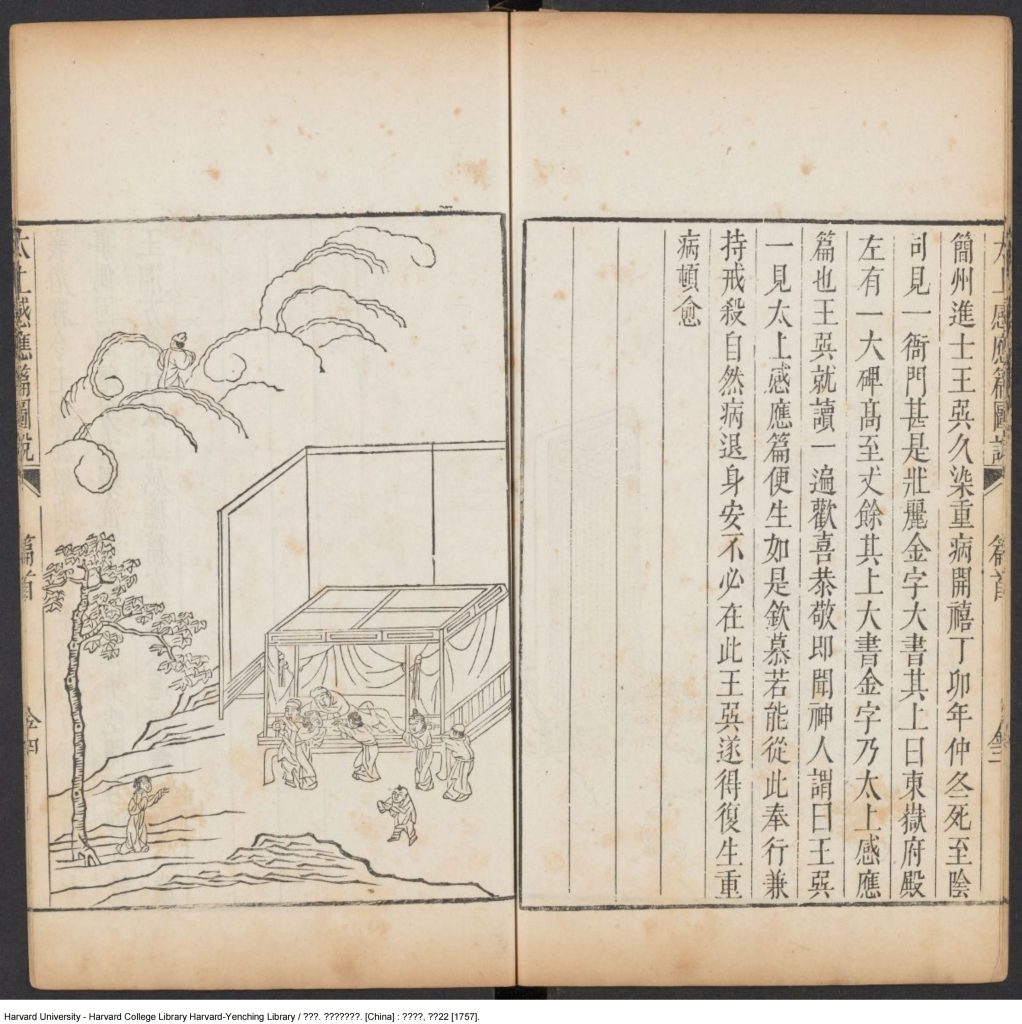 太上感應篇圖說
篇首
簡州進士王巽久染重病開禧丁卯年仲冬死至陰
司見一衙門甚是壯麗金字大書其上曰東嶽府殿
左有一大碑高至丈餘其上大書金字乃太上感應
篇也王巽就讀一遍歡喜恭敬即聞神人謂曰王巽
一見太上感應篇便生如是欽慕若能從此奉行兼
持戒殺自然病退身安不必在此王巽遂得復生重
病頓愈
太上感應篇圖說
篇首
Harvard University - Harvard College Library Harvard-Yenching Library / ???. ???????. [China] : ????, ??22 [1757].